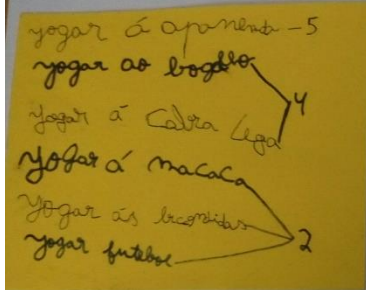 yogar á apanhada - 5
yogar ao
yogar á Cabra Cega 4
yogar á macaca
yogar ás
yogar futebol 2